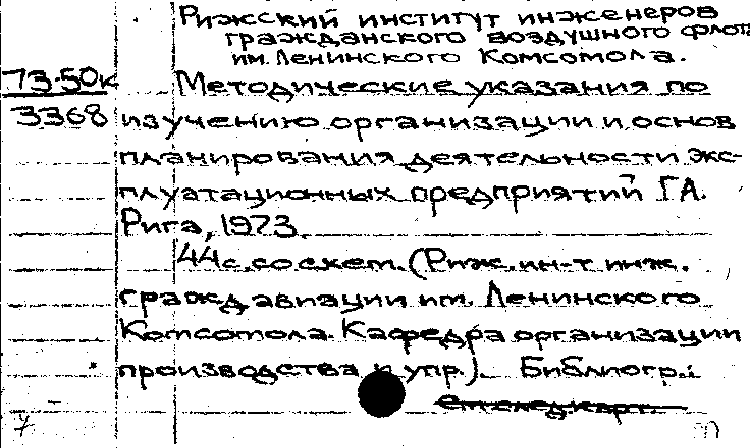 Рижский институт инженеров
гражданского воздушного флота
им. Ленинского Комсомола.
73-50к Методические указания по
3368 изучению организации и основ
планирования деятельности экс-
плуатационных предприятий ГА.
Рига, 1973.
44с. со схем. (Риж. ин-т инж.
гражд авиации им. Ленинского
Комсомола. Кафедра организации
производства и упр.). Библиогр.:
см след карт.